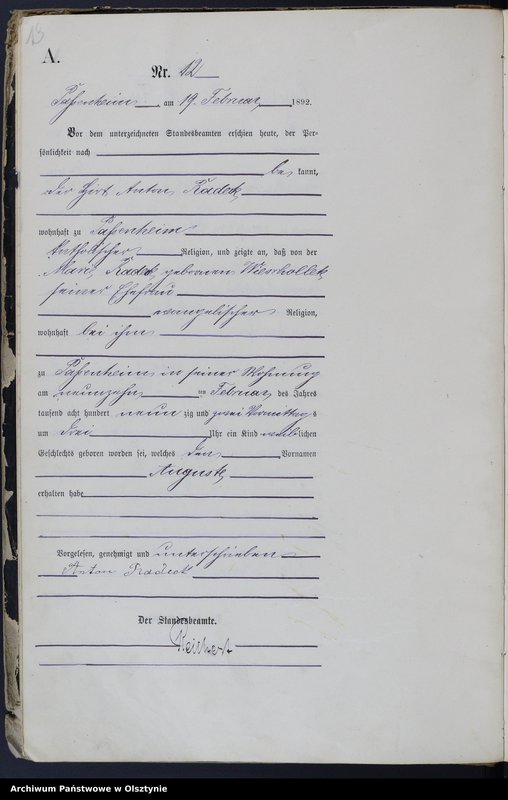 13
A.
Nr. 12
Passenheim, am 19. Februar 1892.
Vor dem unterzeichneten Standesbeamten erschien heute, der Per-
sönlichkeit nach
be kannt,
der Hirt Anton Radek
wohnhaft zu Passenheim
katholischer Religion, und zeigte an, daß von der
Marie Radek geborenen
seiner Ehefrau
evangelischer Religion,
wohnhaft bei ihm
zu Passenheim in seiner Wohnung
am neunzehn ten Februar des Jahres
tausend acht hundert neun zig und zwei Vormittag s
um drei Uhr ein Kind weib lichen
Geschlechts geboren worden sei, welches den Vornamen
Auguste
erhalten habe
Vorgelesen, genehmigt und unterschrieben
Anton
Der Standesbeamte.
Reichert
Archiwum Państwowe w Olsztynie